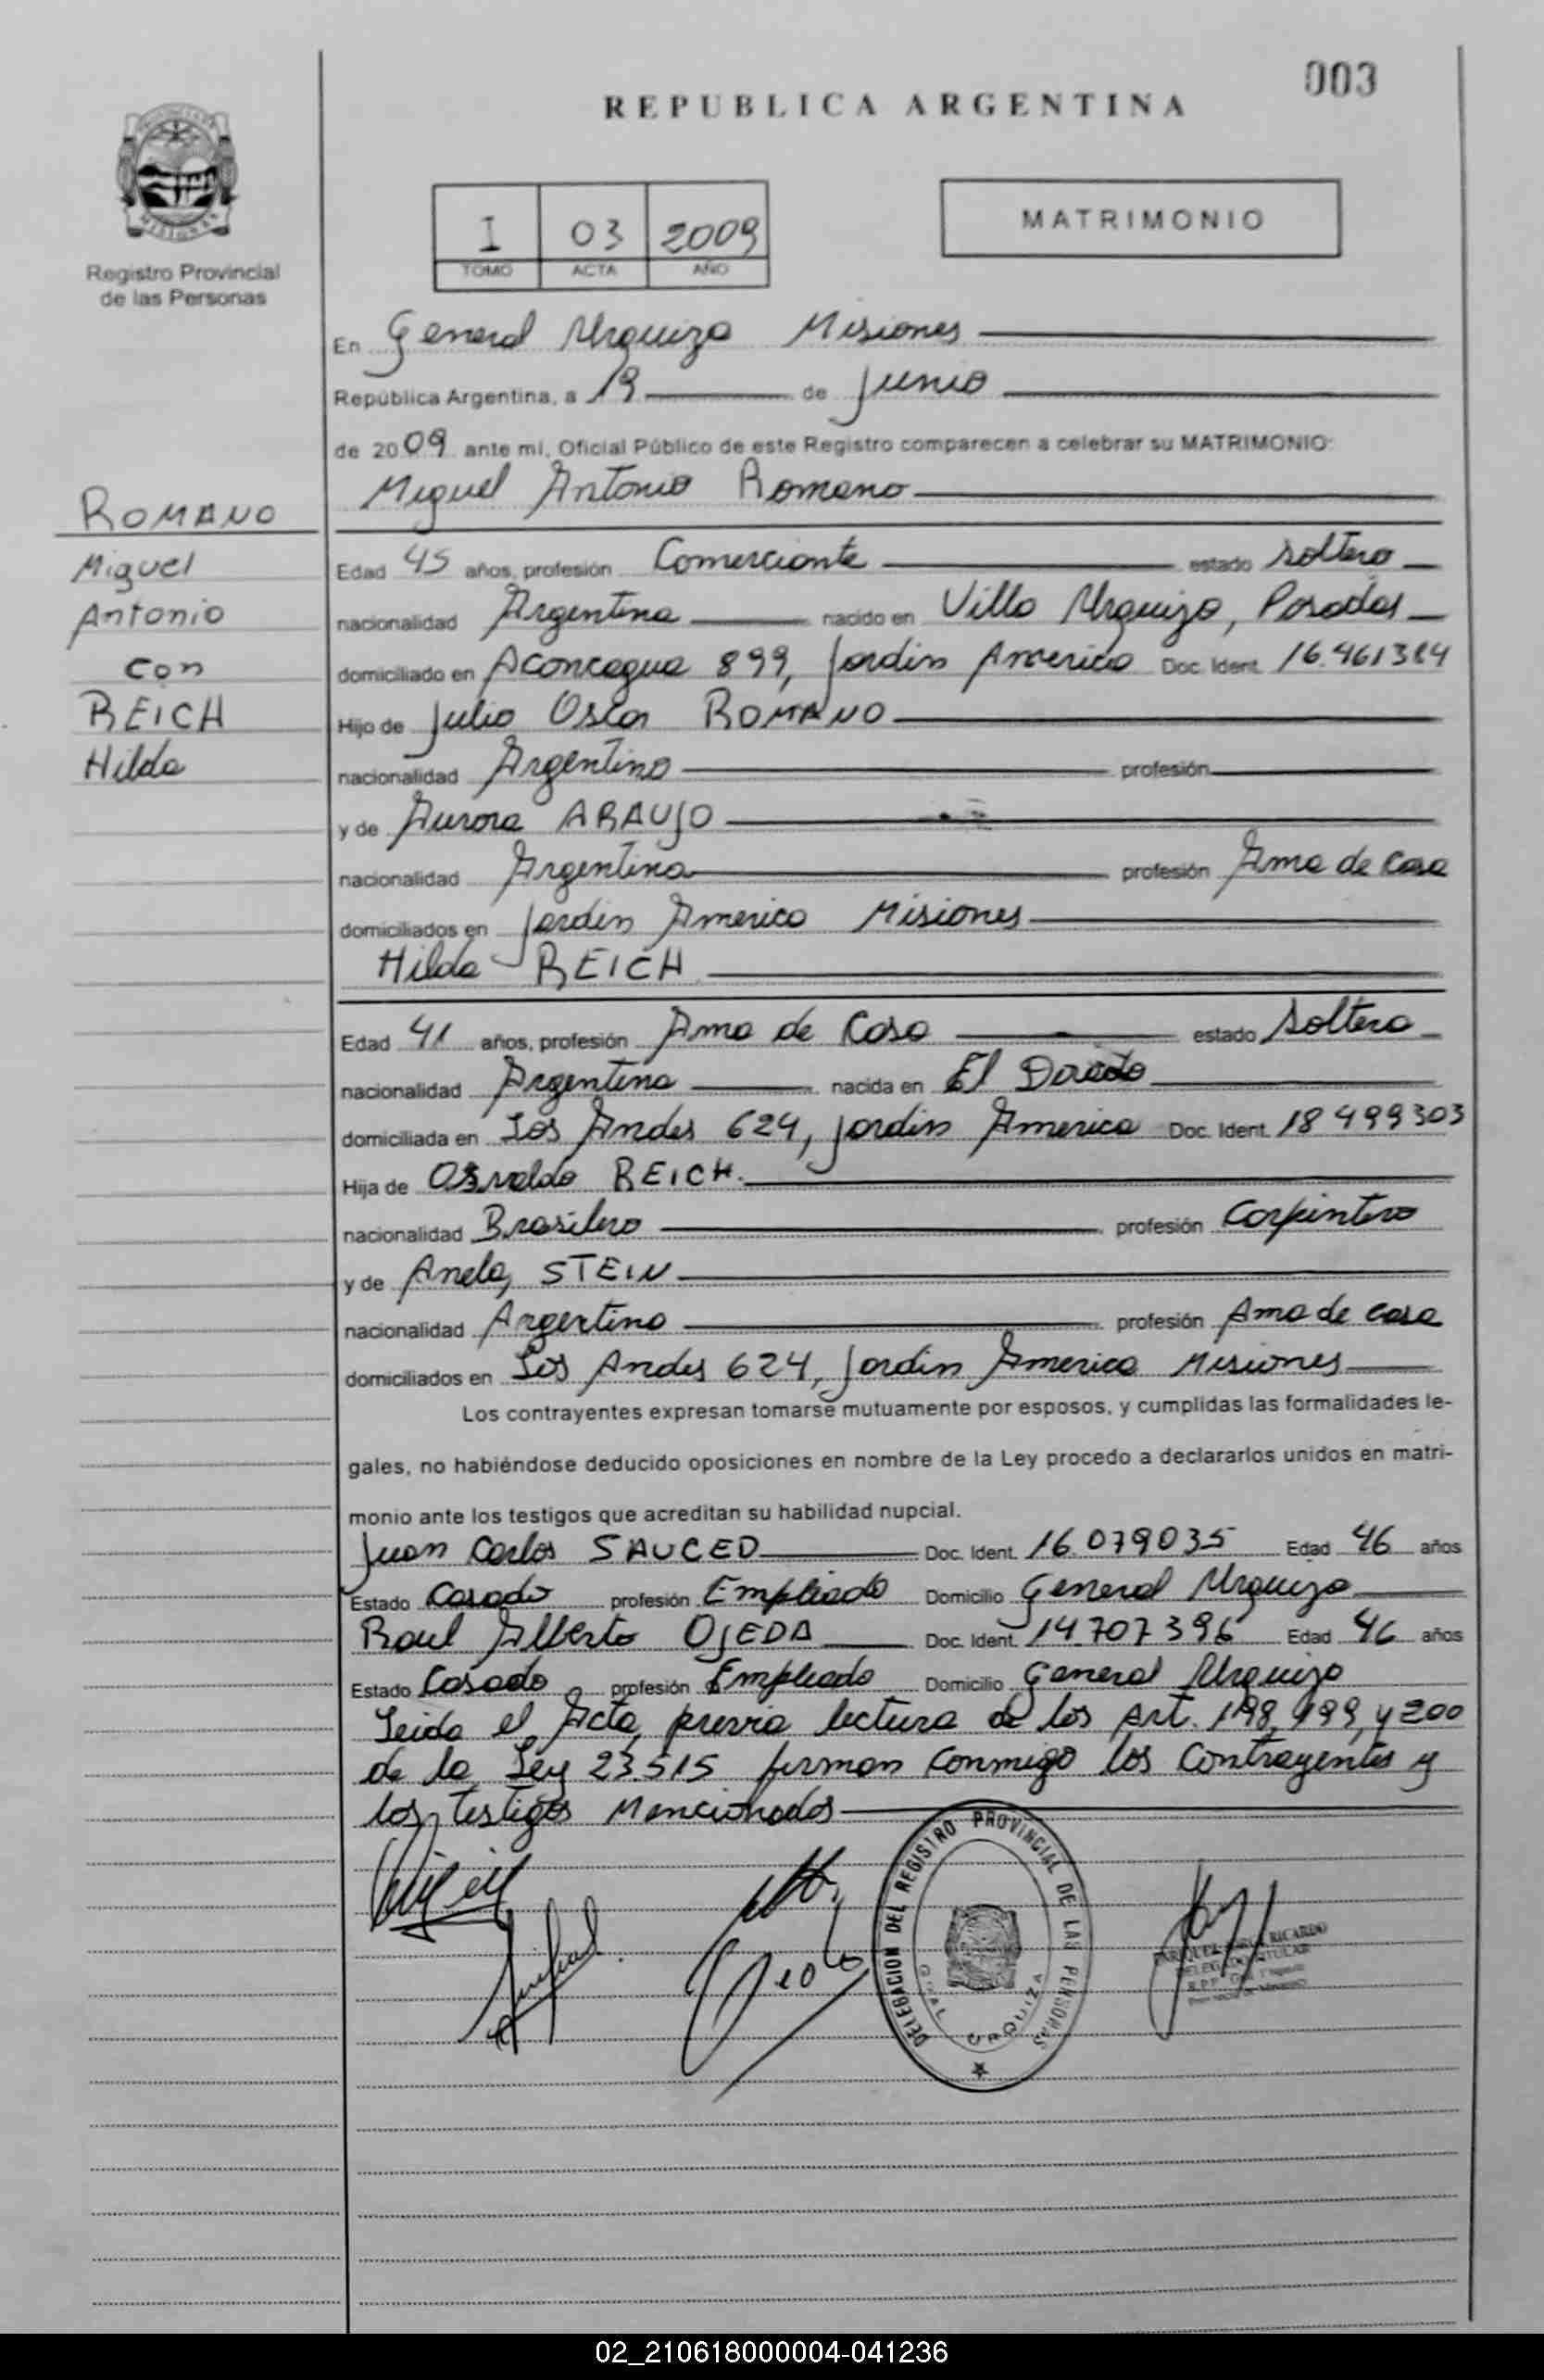 003
REPUBLICA ARGENTINA
PROVINCIA
MISIONES
Registro Provincial
de las Personas
I 03 2009
TOMO ACTA AÑO
MATRIMONIO
En General Urquiza Misiones
República Argentina, a 19 de Junio
de 2009 ante mi, Oficial Público de este Registro comparecen a celebrar su MATRIMONIO:
Miguel Antonio Romano
ROMANO
Miguel
Antonio
con
REICH
Hilda
Edad 45 años, profesión Comerciante estado soltero
nacionalidad Argentina nacido en Villa Urquiza, Posadas
domiciliado en Aconcagua 899, Jardin America Doc. Ident. 16.461384
Hijo de Julio Oscar ROMANO
nacionalidad Argentino profesión
y de Aurora ARAUJO
nacionalidad Argentina profesión Ama de casa
domiciliados en Jardin America Misiones
Hilda REICH
Edad 41 años, profesión Ama de Casa estado Soltera
nacionalidad Argentina nacida en El Dorado
domiciliada en Los Andes 624, Jardin America Doc. Ident. 18 499303
Hija de Osvaldo REICH.
nacionalidad Brasilero profesión Carpintero
y de Anela, STEIN
nacionalidad Argentina profesión Ama de casa
domiciliados en Los Andes 624, Jardin America Misiones
Los contrayentes expresan tomarse mutuamente por esposos, y cumplidas las formalidades le-
gales, no habiéndose deducido oposiciones en nombre de la Ley procedo a declararlos unidos en matri-
monio ante los testigos que acreditan su habilidad nupcial.
Juan Carlos SAUCED Doc. Ident. 16.079035 Edad 46 años
Estado Casado profesión Empleado Domicilio General Urquiza
Raul Alberto OJEDA Doc. Ident. 14.707396 Edad 46 años
Estado Casado profesión Empleado Domicilio General Urquiza
Leida el Acta, previa lectura de los Art. 198, 199, y 200
de la Ley 23.515 firman conmigo los Contrayentes y
los testigos Mencionados
DELEGACION DEL REGISTRO PROVINCIAL DE LAS PERSONAS
GRAL URQUIZA
RICARDO
TITULAR
02_210618000004-041236